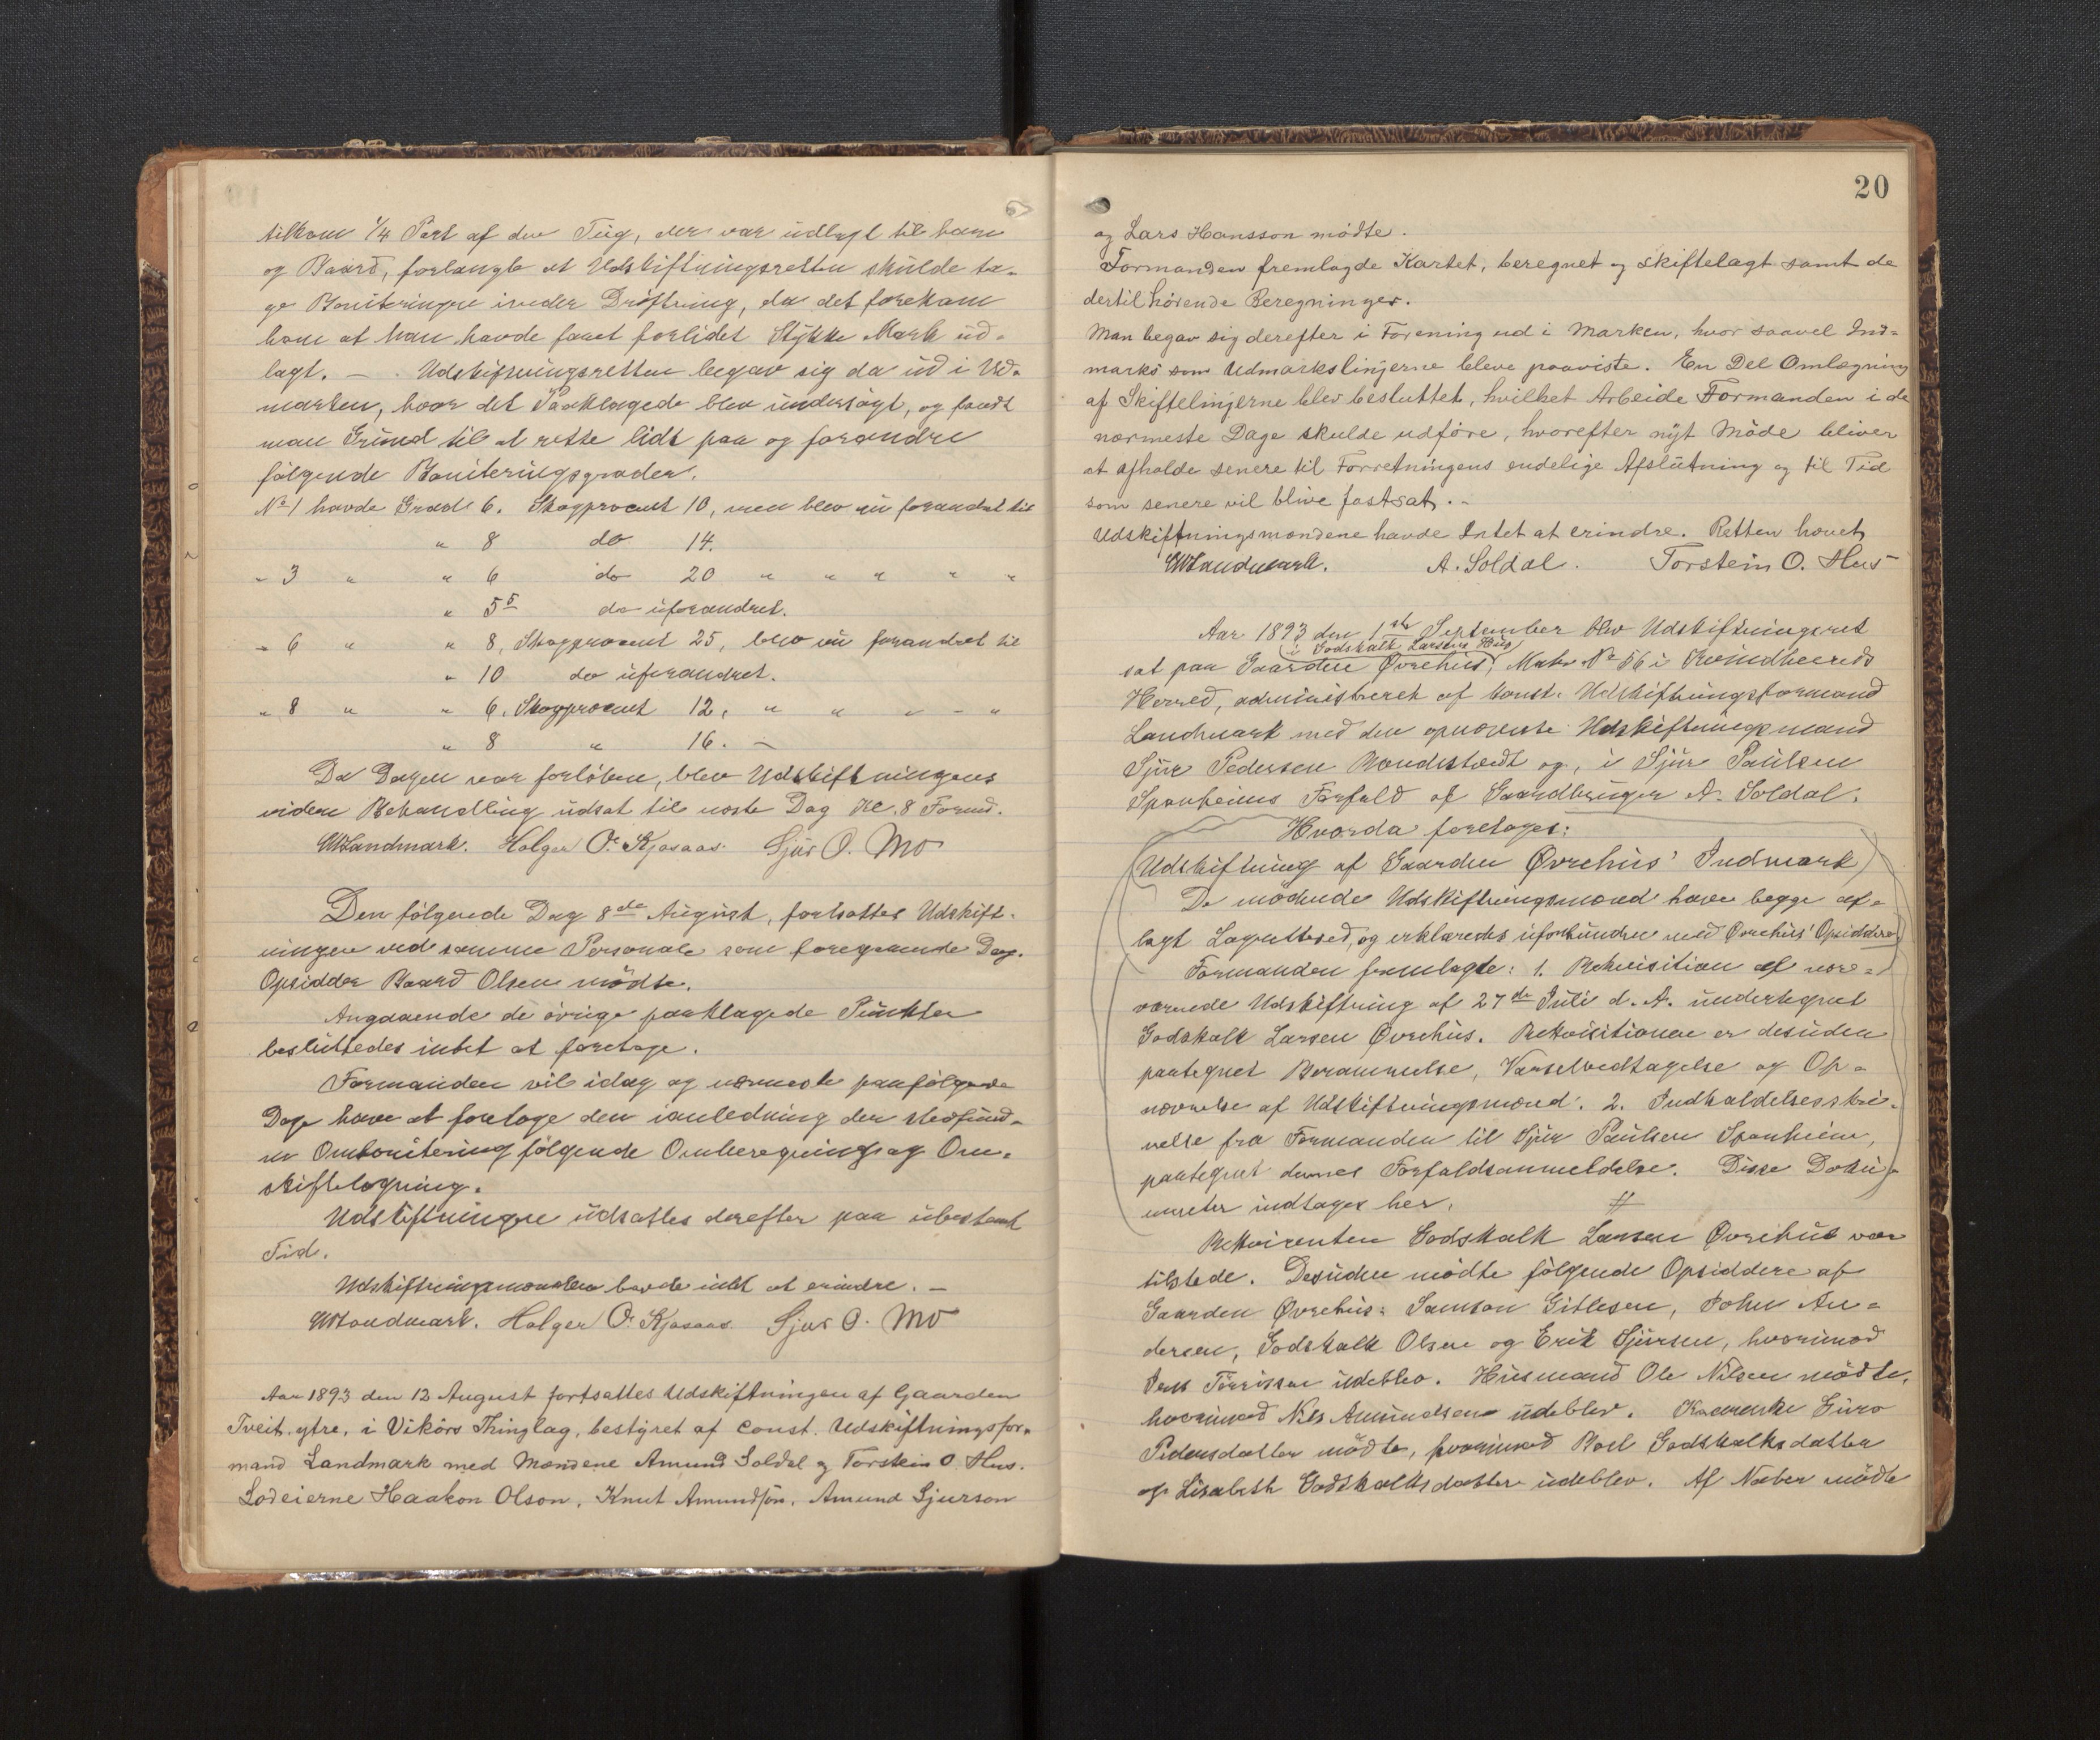 tilkom 1/4 Part af den Teig, der var udlagt til ham
og Baard, forlangte at Udskiftningsretten skulde ta-
ge Boniteringen under Drøftning, da det forekom
ham at han havde faaet forlidet Stykke Mark ud-
lagt. — Udskiftningsretten begav sig da ud i Ud-
marken, hvor det Paaklagede blev undersøgt, og fandt
man Grund til at rette lidt paa og forandre
følgende Boniteringsgrader.
No 1 havde Grad 6. Skogprocent 10, men blev nu forandret til
" 8 do 14.
" 3 " " 6 do 20 " " " " "
" 5 5 do uforandret.
" 6 " " 8, Skogprocent 25, blev nu forandret til
" 10 do uforandret.
" 8 " " 6. Skogprocent 12, " " " - "
" 8 " 16. —
Da Dagen var forløben, blev Udskiftningens
videre Behandling udsat til næste Dag Kl. 8 Formd.
Landmark. Holger O. Kjosaas. Sjur O. Mo
Den følgende Dag 8de August, fortsattes Udskift-
ningen ved samme Personale som foregaaende Dag.
Opsidder Baard Olsen mødte.
Angaaende de øvrige paaklagede Punkter
besluttedes intet at foretage.
Formanden vil idag og nærmeste paafølgende
Dage have at foretage den i anledning den stedfund-
ne Ombonitering følgende Omberegning og Om-
skiftelægning.
Udskiftningen udsattes derefter paa ubestemt
Tid.
Udskiftningsmændene havde intet at erindre. —
Landmark. Holger O. Kjosaas. Sjur O. Mo
Aar 1893 den 12 August fortsattes Udskiftningen af Gaarden
Tveit ytre, i Vikørs Thinglag, bestyret af const. Udskiftningsfor-
mand Landmark med Mændene Amund Soldal og Torstein O. Hus.
Lodeierne Haakon Olson, Knut Amundsøn, Amund Sjurson
20
og Lars Hansson mødte.
Formanden fremlagde Kartet, beregnet og skiftelagt samt de
dertil hørende Beregninger.
Man begav sig derefter i Forening ud i Marken, hvor saavel Ind-
marks som Udmarkslinjerne bleve paaviste. En Del Omlægning
af Skiftelinjerne blev besluttet, hvilket Arbeide Formanden i de
nærmeste Dage skulde udføre, hvorefter nyt Møde bliver
at afholde senere til Forretningens endelige Afslutning og til Tid
som senere vil blive fastsat. -
Udskiftningsmændene havde Intet at erindre. Retten hævet
Landmark. A. Soldal. Torstein O. Hus
Aar 1893 den 1ste September blev Udskiftningsret
i Godskalk Larsens Hus
sat paa Gaarden Øvrehus, Matr No 56 i Kvindherreds
Herred, administreret af const. Udskiftningsformand
Landmark med den opnævnte Udskiftningsmand
Sjur Pedersen og, i Sjur Paulsen
Spanheims Forfald af Gaardbruger A. Soldal.
Hvorda foretages:
Udskiftning af Gaarden Øvrehus' Indmark
De mødende Udskiftningsmænd have begge af-
lagt Lagretteed, og erklæredes uforbundne med Øvrehus' Opsiddere
Formanden fremlagte: 1. Rekvisition af nær-
værende Udskiftning af 27de Juli d. A. undertegnet
Godskalk Larsen Øvrehus. Rekvisitionen er desuden
paategnet Berammelse, Varselvedtagelse og Op-
nævnelse af Udskiftningsmænd. 2. Indkaldelsesskri-
velse fra Formanden til Sjur Paulsen Spanheim,
paategnet dennes Forfaldsanmeldelse. Disse Doku-
menter indtages her. #
Rekvirenten Godskalk Larsen Øvrehus var
tilstede. Desuden mødte følgende Opsiddere af
Gaarden Øvrehus: Samson Gitlesen, John An-
dersen, Godskalk Olsen og Erik Sjursen, hvorimod
Jens Tørrissen udeblev. Husmand Ole Nilsen mødte,
hvorimod Nils Amundsen udeblev. Kaarenke Guro
Pedersdatter mødte, hvorimod Godskalksdatter
og Lisabeth Godskalksdatter udeblev. Af Naber mødte